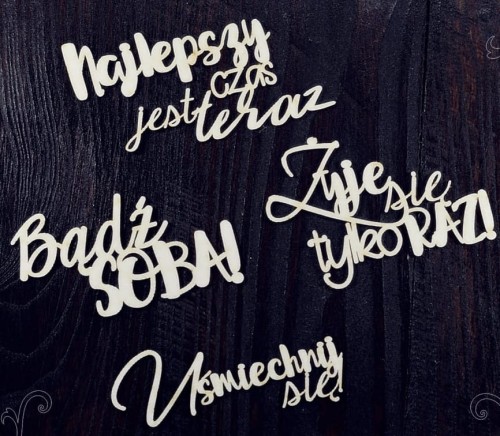 Najlepszy
czas
jest teraz
Żyje się
tylko RAZ!
Bądź
SOBA!
Uśmiechnij
się!